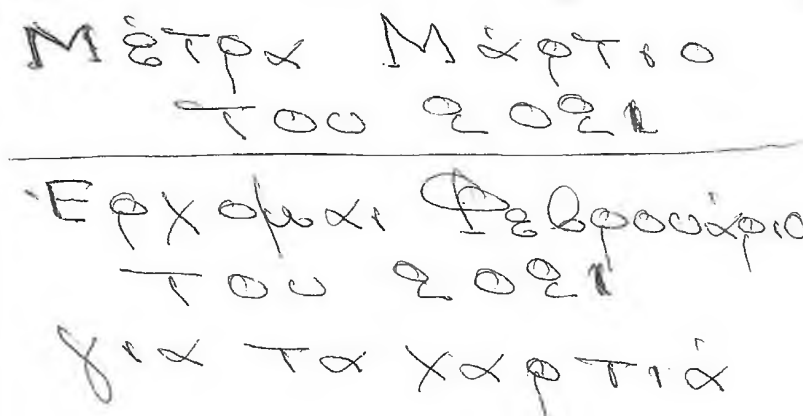 Μέτρα Μάρτιο
του 2021
Έρχομαι Φεβρουάριο
του 2021
για τα χαρτιά